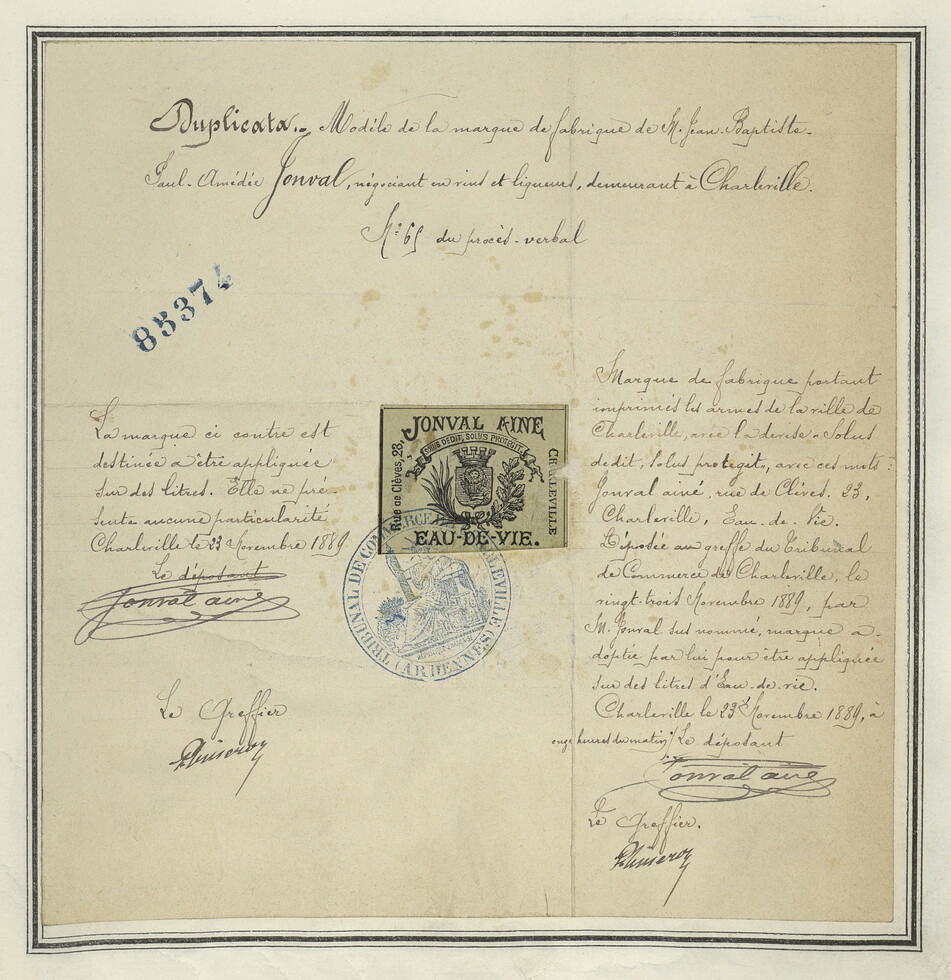 Duplicata.- Modèle de la marque de fabrique de M. Jean-Baptiste-
Paul-Amédée Jonval, négociant en vins et liqueurs, demeurant à Charleville.
Nº 65 du procès-verbal
85374
La marque ci contre est
destinée à être appliquée
sur des litres. Elle ne pré-
sente aucune particularité
Charleville le 23 Novembre 1889
Le déposant
Jonval ainé
Le Greffier
JONVAL AINE
SOLUS DEDIT, SOLUS PROTEGIT
Rue de Clèves, 23,
CHARLEVILLE
EAU-DE-VIE.
TRIBUNAL DE COMMERCE DE CHARLEVILLE (ARDENNES)
Marque de fabrique portant
imprimés les armes de la ville de
Charleville, avec la devise "Solus
dedit, Solus protegit", avec ces mots:
Jonval ainé, rue de Clèves, 23,
Charleville, Eau-de-Vie.
Déposée au greffe du Tribunal
de Commerce de Charleville, le
vingt-trois Novembre 1889, par
M. Jonval sus nommé, marque a-
doptée par lui pour être appliquée
sur des litres d'Eau-de-vie.
Charleville le 23 Novembre 1889, à
onze heures du matin / Le déposant
Jonval ainé
Le Greffier.